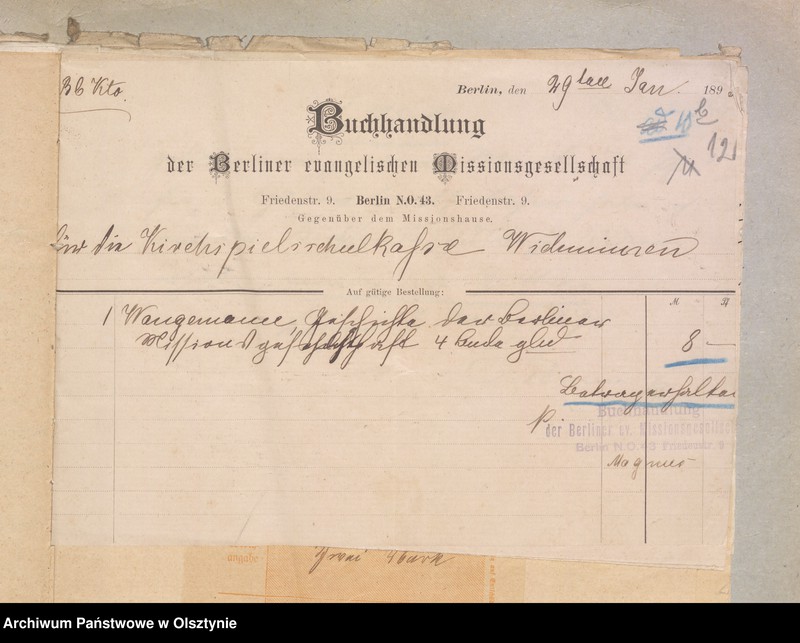 Kto.
Berlin, den 29ten Jan. 189
Buchhandlung
12
der Berliner evangelischen Missionsgesellschaft
Friedenstr. 9. Berlin N.O. 43. Friedenstr. 9.
Gegenüber dem Missionshause.
Für die Kirchspielsschulkasse Widminnen
Auf gütige Bestellung:
M. ₰
1 Wangemann, Geschichte der Berliner
Missionsgesellschaft 4 Bde 8 —
Betrag erhalten
Buchhandlung
der Berliner ev. Missionsgesellsch
Berlin N.O. 43 Friedenstr. 9
Magnus
angabe
Zwei Mark
Archiwum Państwowe w Olsztynie